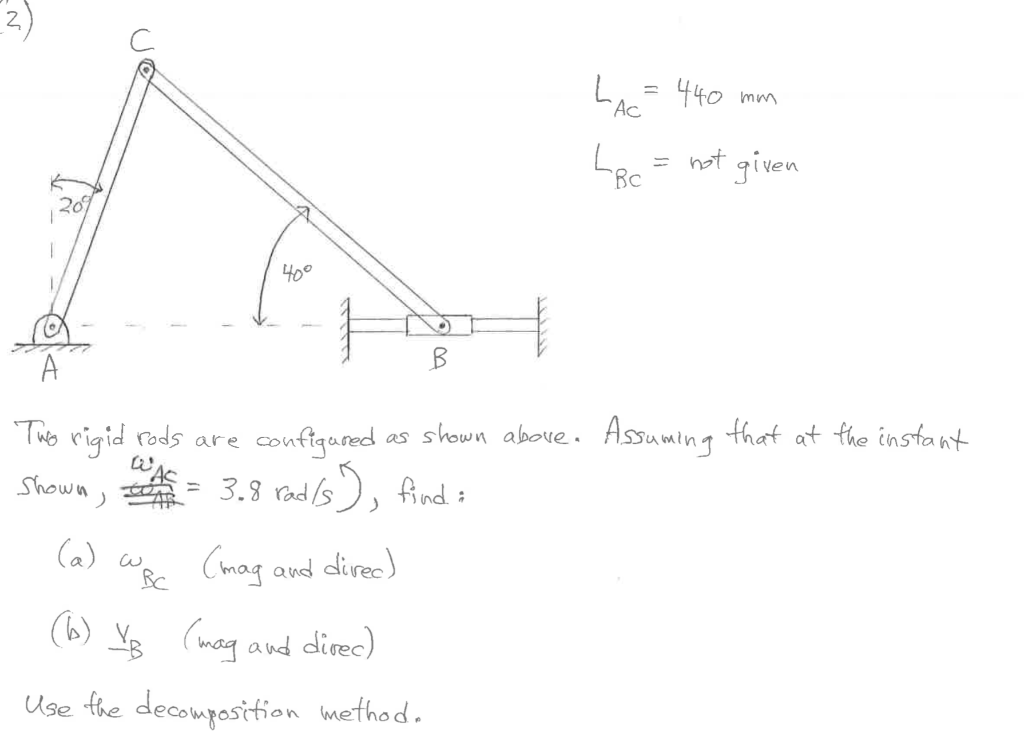 2)
C
L_AC = 440 mm
L_BC = not given
20°
40°
A
B
Two rigid rods are configured as shown above. Assuming that at the instant
shown, ω_AC = 3.8 rad/s ↺, find:
(a) ω_BC (mag and direc)
(b) V_B (mag and direc)
Use the decomposition method.